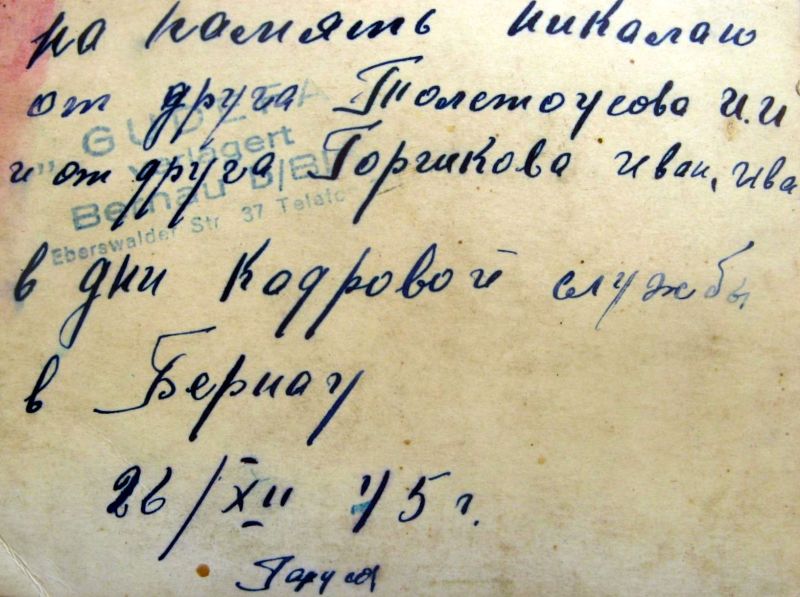 на память никалаю
от друга Толстоусова И.И
и от друга Горшкова Иван. Ива
в дни Кадровой службы
в Бернау
26/XII 45 г.
GUDZEIT
Verlagert
Bernau b/B
Eberswalder Str. 37 Telefo